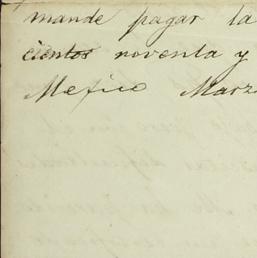 mande pagar la
cientos noventa y
Mexico Marz